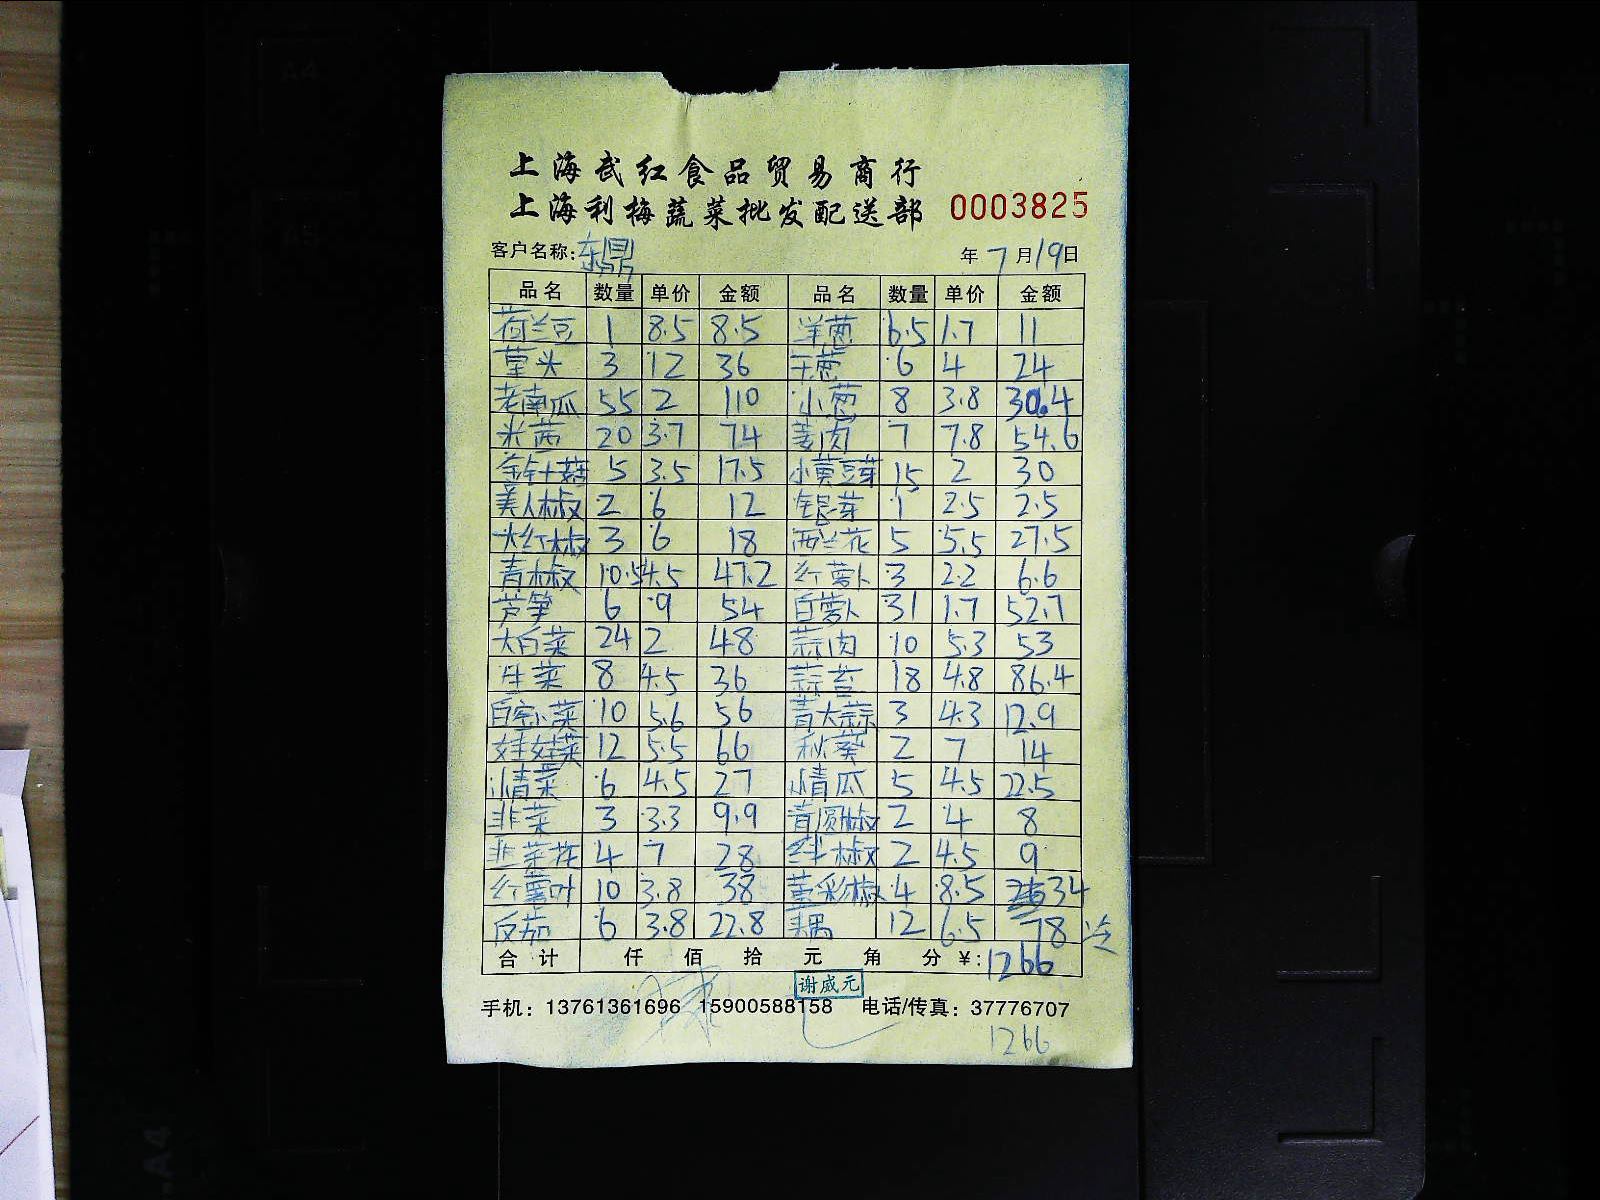 上海武红食品贸易商行
上海利梅蔬菜批发配送部 0003825
客户名称:东鼎 年7月19日
品名 数量 单价 金额 品名 数量 单价 金额
荷兰豆 1 8.5 8.5 洋葱 6.5 1.7 11
草头 3 12 36 干葱 6 4 24
老南瓜 55 2 110 小葱 8 3.8 30.4
米苋 20 3.7 74 姜肉 7 7.8 54.6
金针菇 5 3.5 17.5 小黄豆芽 15 2 30
美人椒 2 6 12 银芽 1 2.5 2.5
大红椒 3 6 18 西兰花 5 5.5 27.5
青椒 10.5 4.5 47.2 红萝卜 3 2.2 6.6
芦笋 6 9 54 白萝卜 31 1.7 52.7
大白菜 24 2 48 蒜肉 10 5.3 53
生菜 8 4.5 36 蒜苔 18 4.8 86.4
白密小菜 10 5.6 56 青大蒜 3 4.3 12.9
娃娃菜 12 5.5 66 秋葵 2 7 14
小青菜 6 4.5 27 小青瓜 5 4.5 22.5
韭菜 3 3.3 9.9 青圆椒 2 4 8
韭菜花 4 7 28 尖椒 2 4.5 9
红薯叶 10 3.8 38 黄彩椒 4 8.5 34
茄 6 3.8 22.8 藕 12 6.5 78
合计 仟 佰 拾 元 角 分 ¥:1266
谢威元
手机：13761361696 15900588158 电话/传真：37776707
1266